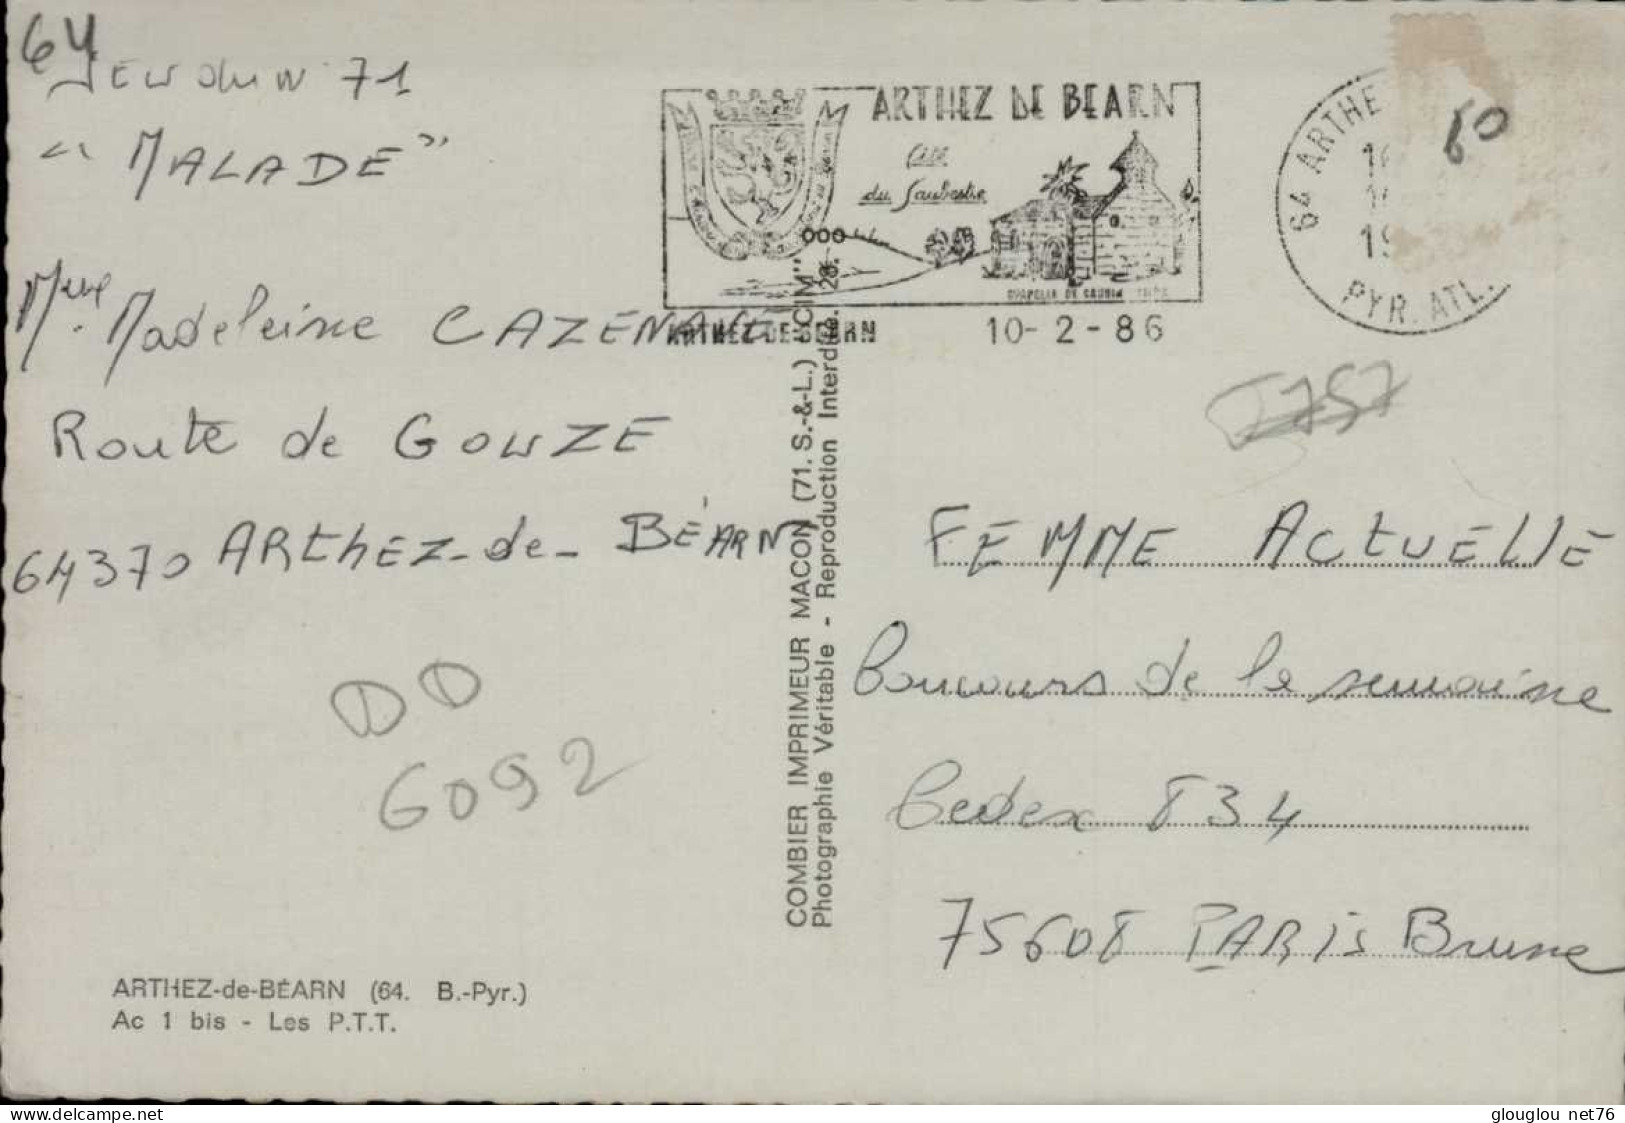 64
Jeu du N° 71
" MALADE "
Mme Madeleine CAZENAVE
Route de GOUZE
64370 ARthEZ-de-BÉARN
DD
6092
ARTHEZ-de-BÉARN (64. B.-Pyr.)
Ac 1 bis - Les P.T.T.
COMBIER IMPRIMEUR MACON (71. S.-&-L.) "CIM"
Photographie Véritable - Reproduction Interdite.
ARTHEZ DE BEARN
Cité
du Saubestre
ARTHEZ-DE-BEARN
10-2-86
64 ARTHE
PYR. ATL.
60
5757
FEMME ActuELLE
Concours de la semaine
Cedex 834
75608 PARIS Brune
delcampe.net
glouglou net76